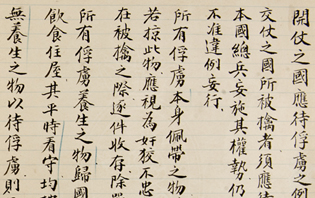 開仗之國應待俘虜之例
交仗之國所被擒者須應待
本國總兵妄施其權勢仍
不准違例妄行
所有俘虜本身佩帶之物
若掠此物應視為奸狡不忠
在被擒之際逐件收存除
所有俘虜養生之物歸國
飲食住屋其平時看守均
無養生之物以待俘虜則